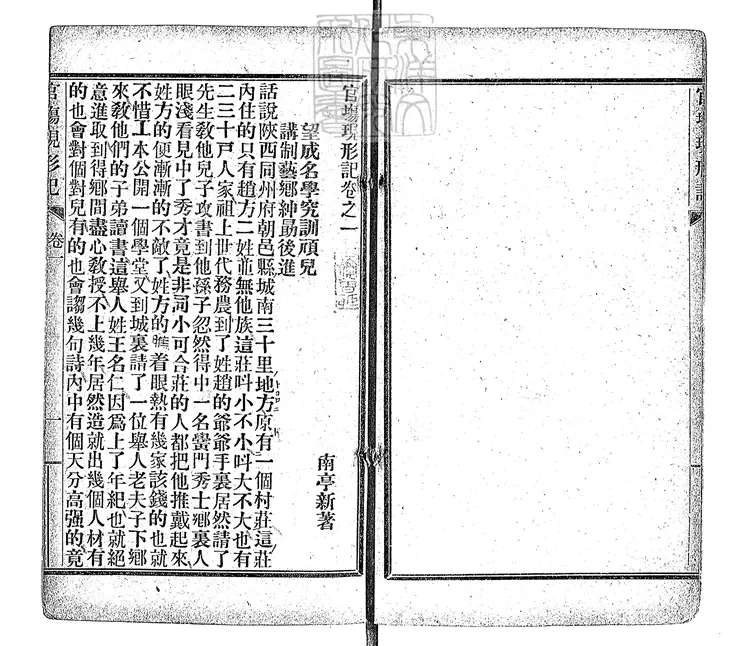 官塲現形記卷之一
南亭新著
望成名學究訓頑兒
講制藝鄉紳勗後進
話說陝西同州府朝邑縣城南三十里地方原有一個村莊這莊
內住的只有趙方二姓並無他族這莊呌小不小呌大不大也有
二三十戶人家祖上世代務農到了姓趙的爺爺手裏居然請了
先生敎他兒子攻書到他孫子忽然得中一名黌門秀士鄉裏人
眼淺看見中了秀才竟是非同小可合莊的人都把他推戴起來
姓方的便漸漸的不敵了姓方的瞧着眼熱有幾家該錢的也就
不惜工本公開一個學堂又到城裏請了一位舉人老夫子下鄉
來敎他們的子弟讀書這舉人姓王名仁因爲上了年紀也就絕
意進取到得鄉間盡心敎授不上幾年居然造就出幾個人材有
的也會對個對兒有的也會謅幾句詩內中有個天分高强的竟
官塲現形記
卷一
一